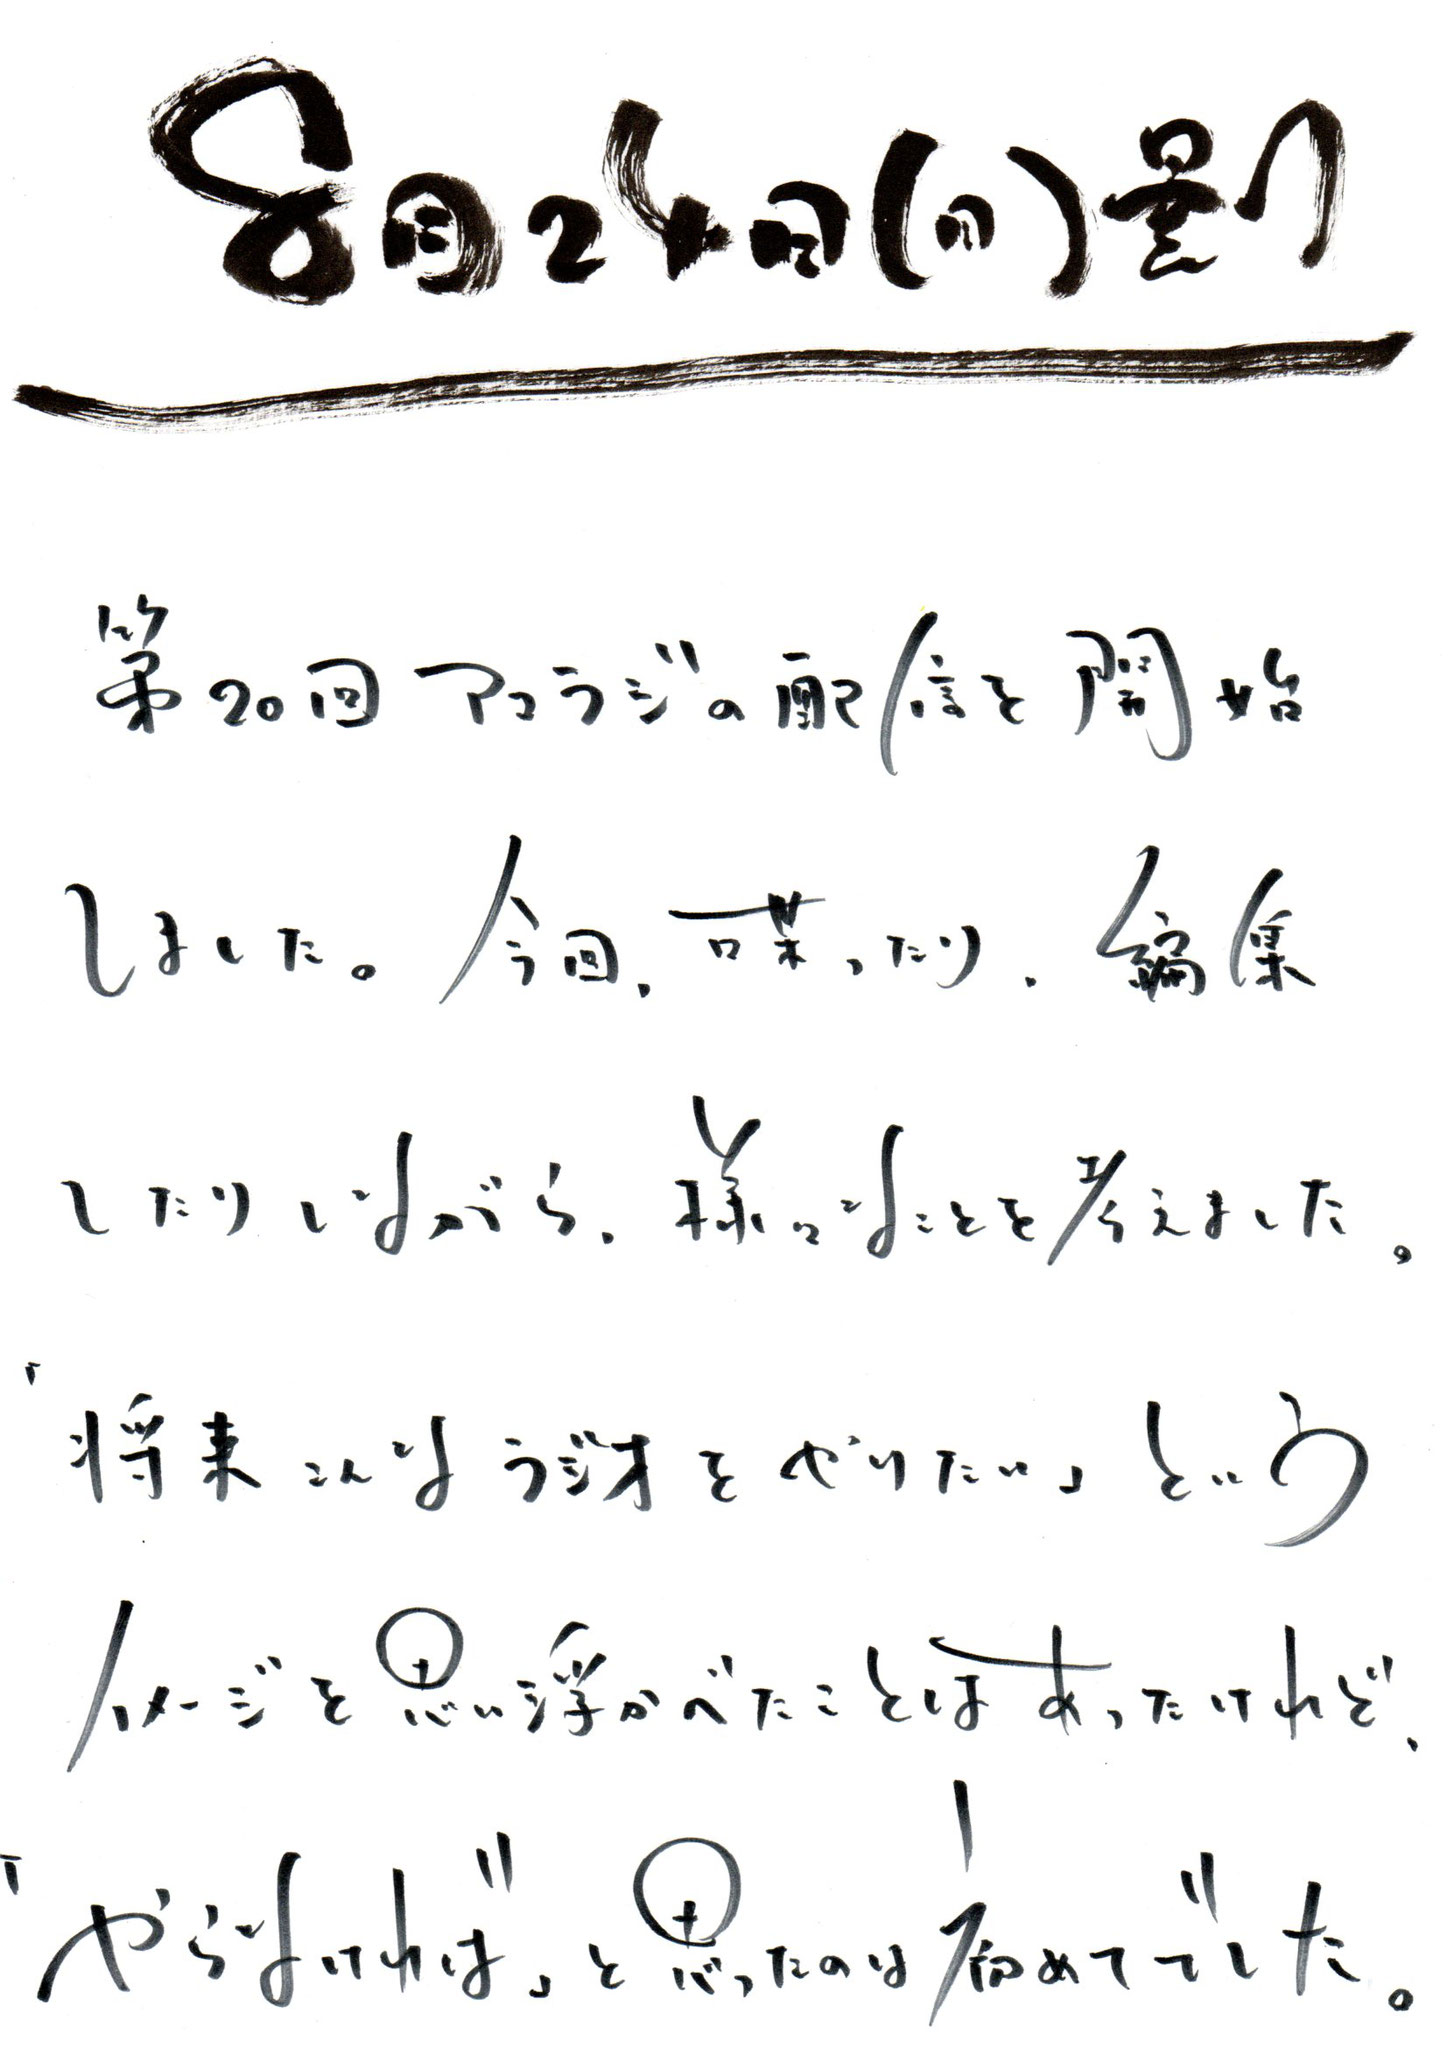 8月24日(月)曇り
第20回アコラジの配信を開始
しました。今回、喋ったり、編集
したりしながら、様々なことを考えました。
「将来こんなラジオをやりたい」という
イメージを思い浮かべたことはあったけれど、
「やらなければ」と思ったのは初めてでした。